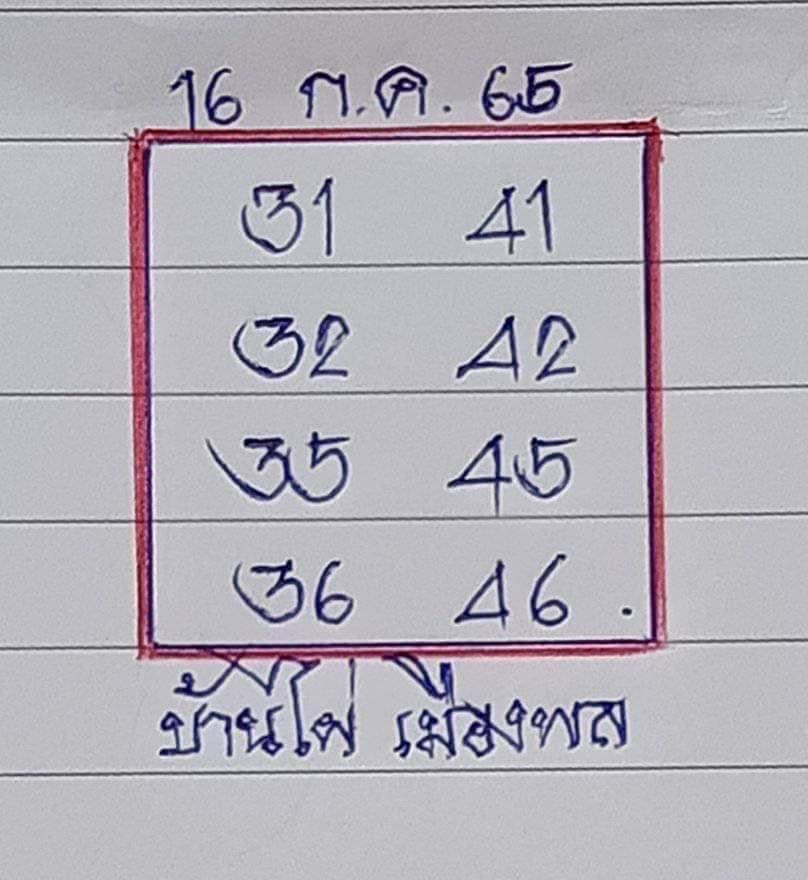 16 ก.ค. 65
31 41
32 42
35 45
36 46.
บ้านไผ่ เมืองพล